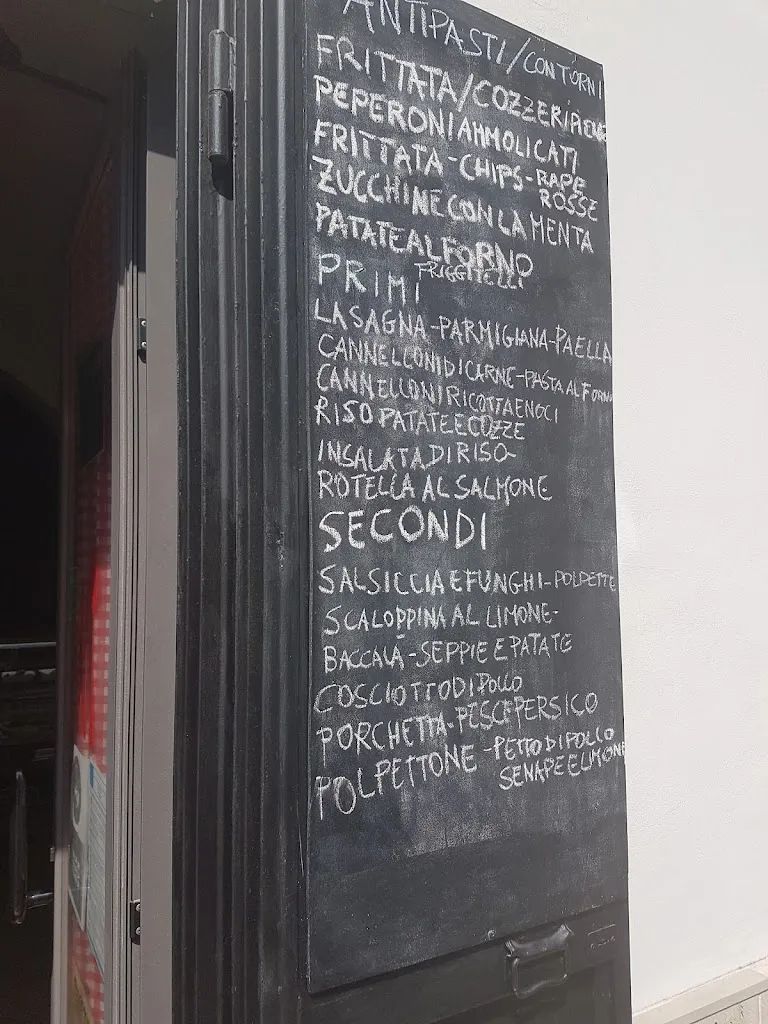 ANTIPASTI/CONTORNI
FRITTATA/COZZERIPIENE
PEPERONI AMMOLICATI
FRITTATA-CHIPS-RAPE
ROSSE
ZUCCHINE CON LA MENTA
PATATE AL FORNO
FRIGGITELLI
PRIMI
LASAGNA-PARMIGIANA-PAELLA
CANNELLONI DI CARNE-PASTA AL FORNO
CANNELLONI RICOTTA E NOCI
RISO PATATE E COZZE
INSALATA DI RISO-
ROTELLA AL SALMONE
SECONDI
SALSICCIA E FUNGHI-POLPETTE
SCALOPPINA AL LIMONE-
BACCALÀ-SEPPIE E PATATE
COSCIOTTO DI POLLO
PORCHETTA-PESCE PERSICO
POLPETTONE-PETTO DI POLLO
SENAPE E LIMONE